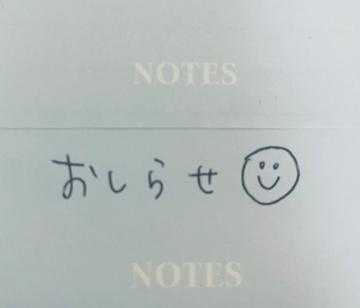 NOTES
おしらせ
NOTES